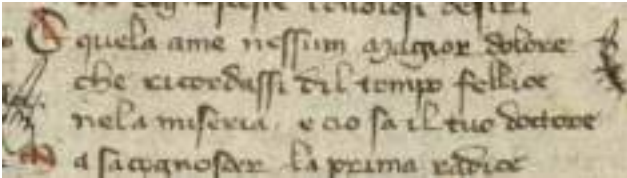 E quela ame nessum magior dolore
che ricordassi dil tempo fellice
nela miseria e cio sa il tuo doctore
Ma sa cognoscer la prima radice